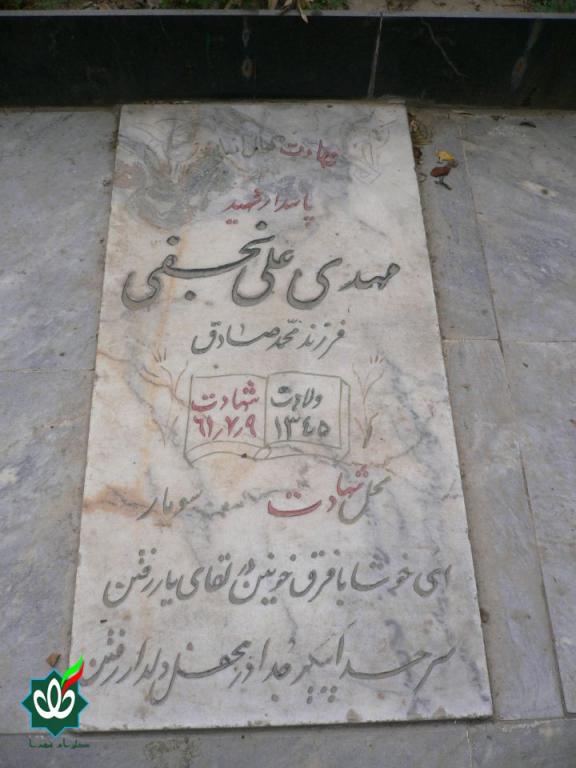 شهادت
پاسدار شهید
مهدی علی نجفی
فرزند محمد صادق
ولادت ۱۳۴۵
شهادت ۶۱٫۷٫۹
محل شهادت سومار
ای خوشا با فرق خونین در لقای یار رفتن
سر جدا پیکر جدا در محفل دلدار رفتن